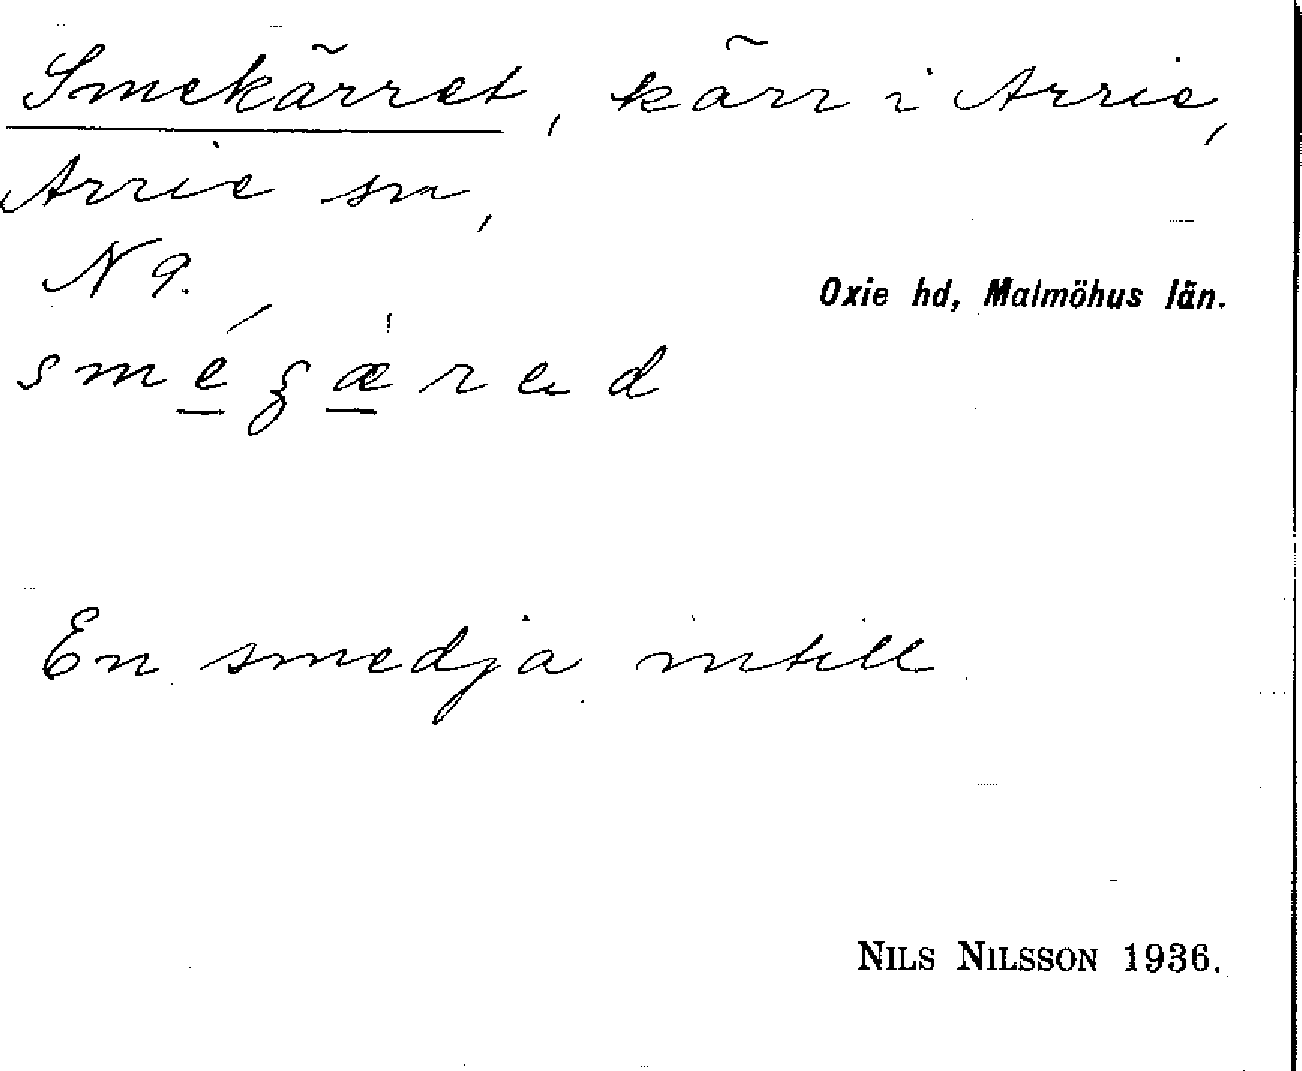 Smekärret, kärr i Arrie,
Arrie sn,
N 9.
Oxie hd, Malmöhus län.
En smedja intill
NILS NILSSON 1936.